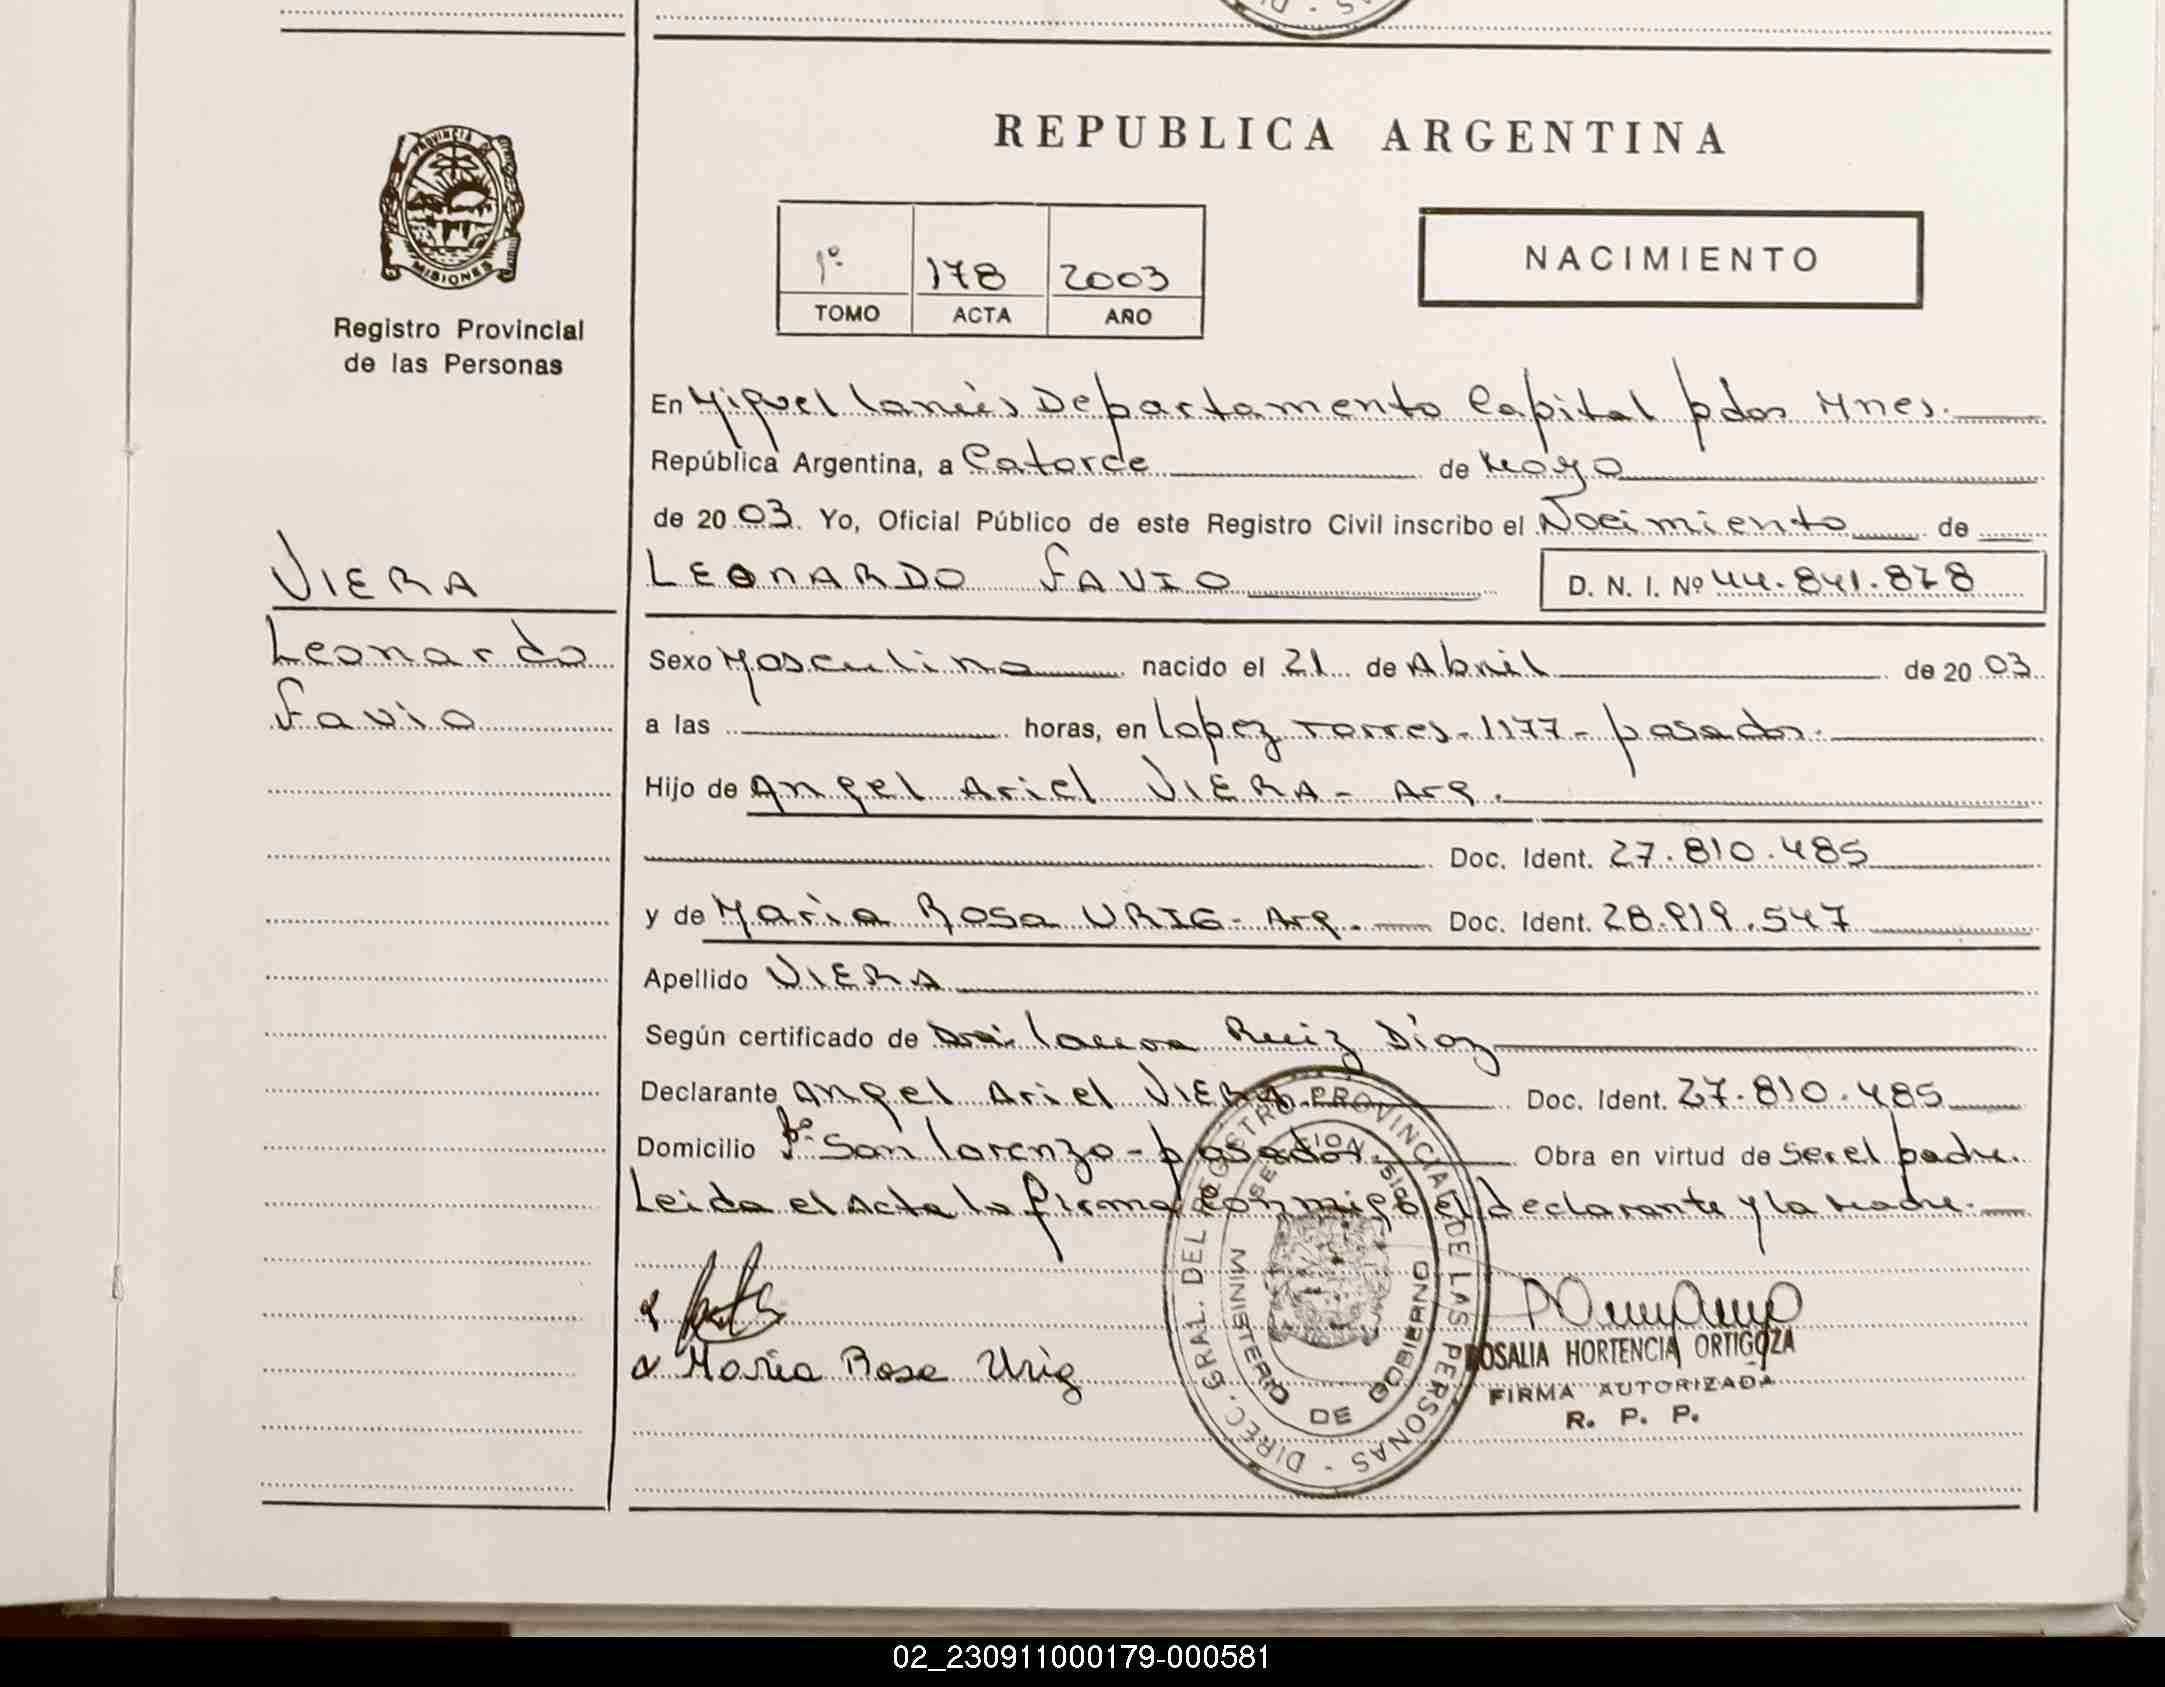 REPUBLICA ARGENTINA
PROVINCIA DE MISIONES
Registro Provincial
de las Personas
1º 178 2003
TOMO ACTA AÑO
NACIMIENTO
VIERA
Leonardo
Favio
En Miguel Lanús Departamento Capital pdas Mnes.
República Argentina, a Catorce de Mayo
de 2003. Yo, Oficial Público de este Registro Civil inscribo el Nacimiento de
LEONARDO FAVIO D. N. I. Nº 44.841.878
Sexo Masculino nacido el 21 de Abril de 2003
a las horas, en Lopez Torres-1177-posadas.
Hijo de Angel Ariel VIERA - Arg.
Doc. Ident. 27.810.485
y de Maria Rosa URIG - Arg. Doc. Ident. 28.919.547
Apellido VIERA
Según certificado de Dra. Laura Ruiz Diaz
Declarante Angel Ariel VIERA Doc. Ident. 27.810.485
Domicilio Bº San Lorenzo - posadas. Obra en virtud de Ser el padre.
Leida el Acta la firma conmigo el declarante y la madre.
Maria Rosa Urig
DIREC. GRAL. DEL REGISTRO PROVINCIAL DE LAS PERSONAS
MINISTERIO DE GOBIERNO
ROSALIA HORTENCIA ORTIGOZA
FIRMA AUTORIZADA
R. P. P.
02_230911000179-000581